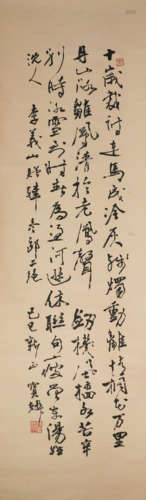 十歲裁詩走馬成冷灰殘燭動離情桐花萬里
丹山路雛鳳清於老鳳聲劍棧風檣各苦辛
別時冰雪到時春為憑何遜休聯句瘦盡東陽姓
沈人 李義山贈韓冬郎二絕
己巳新山